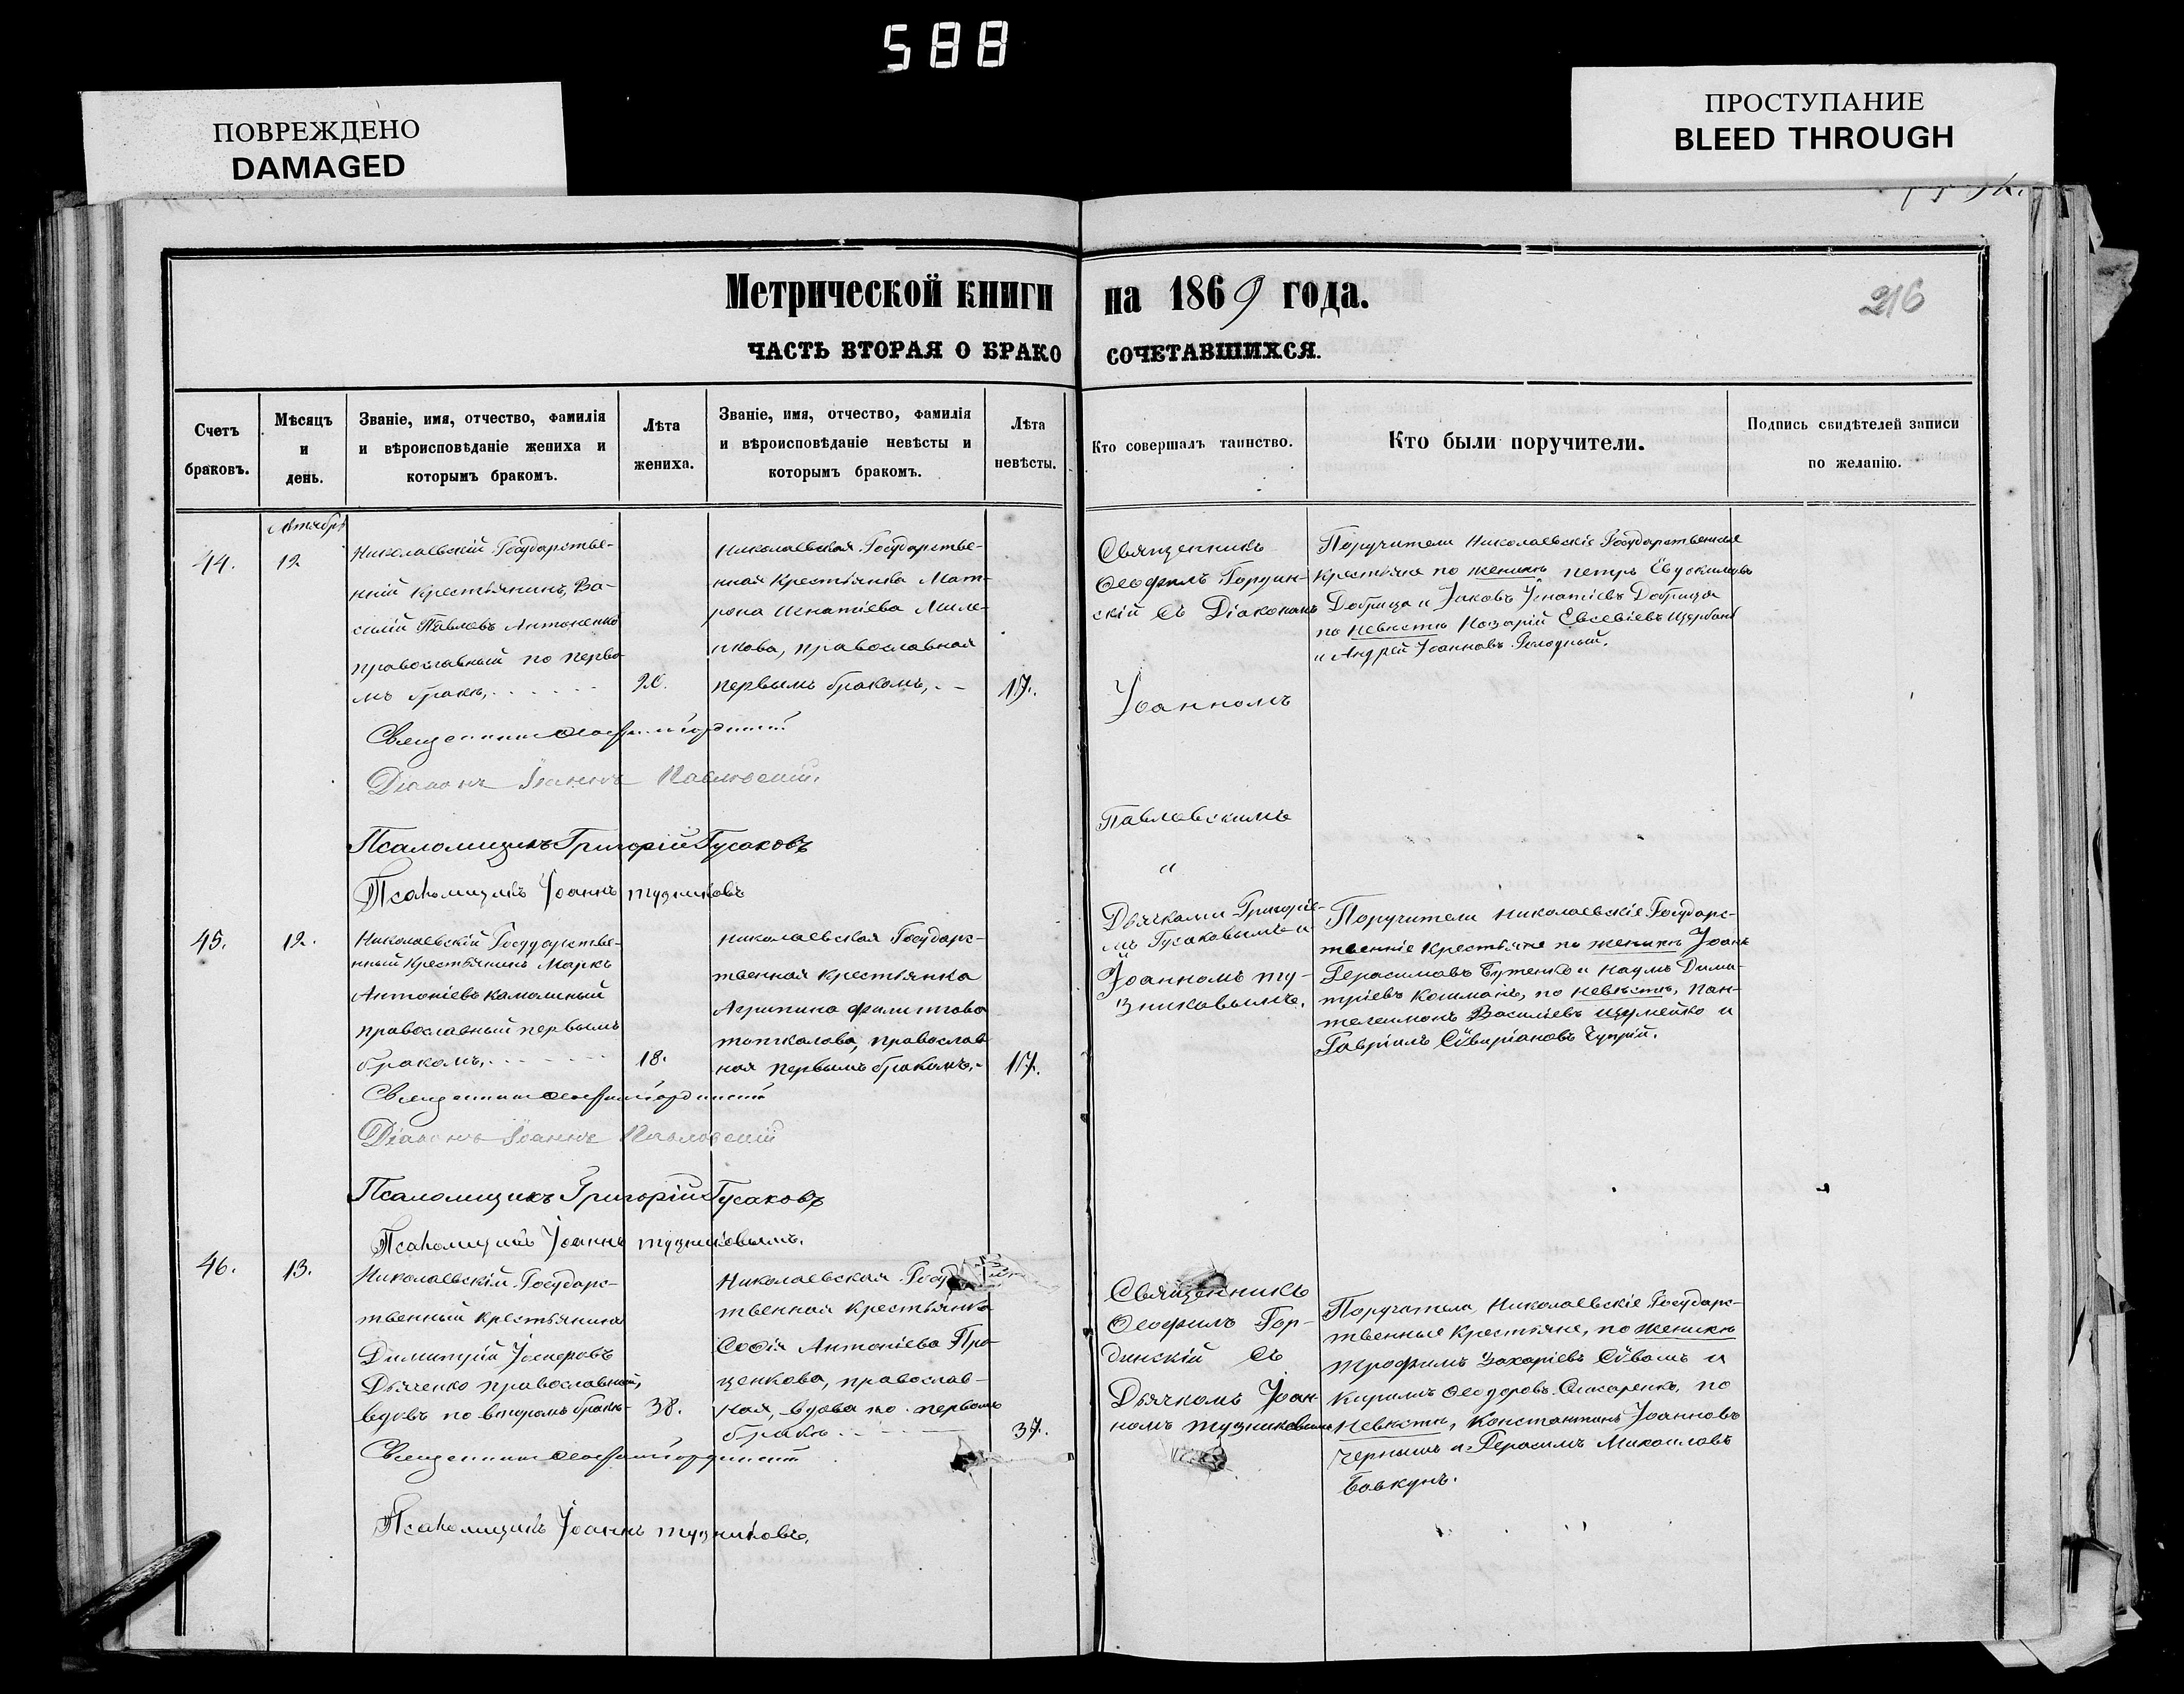 588
ПОВРЕЖДЕНО
DAMAGED
ПРОСТУПАНИЕ
BLEED THROUGH
Метрической книги на 1869 года.
216
ЧАСТЬ ВТОРАЯ О БРАКОСОЧЕТАВШИХСЯ.
Счетъ
браковъ.
Мѣсяцъ
и
день.
Званіе, имя, отчество, фамилія
и вѣроисповѣданіе жениха и
которымъ бракомъ.
Лѣта
жениха.
Званіе, имя, отчество, фамилія
и вѣроисповѣданіе невѣсты и
которымъ бракомъ.
Лѣта
невѣсты.
Кто совершалъ таинство.
Кто были поручители.
Подпись свидѣтелей записи
по желанію.
44.
12
Николаевскій Государстве-
нній Крестьянинъ, Ва-
силій Павловъ Антоненко
православный по перво-
мъ бракѣ,
20.
Николаевская Государстве-
нная Крестьянка Мат-
рона Игнатіева Миле-
нкова, православная
первымъ бракомъ,
17.
Священникъ
Ѳеофилъ Гордин-
скій съ Діакономъ
Іоанномъ
Павловскимъ
"
Дьячками Григоріе-
мъ Гусаковымъ и
Іоанномъ Ту-
зниковымъ.
Поручители Николаевскіе Государственные
Крестьяне по женихѣ Петръ
Добрица и Іаковъ Игнатіевъ Добрица
по невѣстѣ Назарій Евсевіевъ Щербакъ
и Андрей Іоанновъ Голодный.
Священникъ Ѳеофилъ Гординскій
Діаконъ Іоаннъ Павловскій.
Псаломщикъ Григорій Гусаковъ
Псаломщикъ Іоаннъ Тузниковъ
45.
12.
Николаевскій Государстве-
нный Крестьянинъ Маркъ
Антоніевъ Камолиный
православный первымъ
бракомъ,
18.
Николаевская Государс-
твенная Крестьянка
Агрипина Филиппова
православ
ная первымъ бракомъ,
17.
Поручители Николаевскіе Государс-
твенніе Крестьяне по женихѣ Іоанъ
Герасимовъ Бутенко и Наумъ Дими-
тріевъ Кошманъ, по невѣстѣ, Пан-
телеимонъ Василіевъ и
Гавріилъ Чуприй.
Священникъ Ѳеофилъ Гординскій
Діаконъ Іоаннъ Павловскій
Псаломщикъ Григорій Гусаковъ
Псаломщикъ Іоаннъ Тузниковымъ.
46.
13.
Николаевскій Государс-
твенный Крестьянинъ
Димитрій
Дьяченко православный,
вдовъ по вторымъ бракѣ
38.
Николаевская Госуд
твенная Крестьянка
Софія Антоніева Про-
ценкова, православ-
ная, вдова по первомъ
бракѣ
37.
Священникъ
Ѳеофилъ Гор-
динскій съ
Дьячкомъ Іоан-
номъ Тузниковымъ
Поручители Николаевскіе Государс-
твенные Крестьяне, по женихѣ
Трофимъ Захаріевъ и
Кирилъ Ѳеодоровъ Слюсаренко, по
невѣстѣ, Константинъ Іоанновъ
Чернышъ и Герасимъ Михаиловъ
Бовкунъ.
Священникъ Ѳеофилъ Гординскій
Псаломщикъ Іоаннъ Тузниковъ.